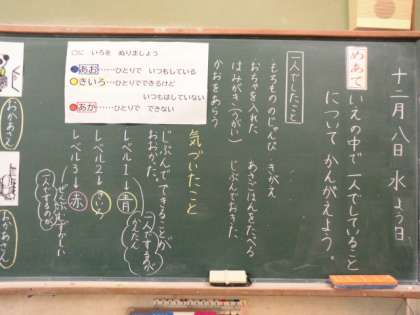 十二月八日 水よう日
めあて
いえの中で一人でしていること
についてかんがえよう。
一人でしたこと
もちもののじゅんび きがえ
おちゃを入れた あさごはんをたべる
はみがき(うがい) じぶんでおきた
かおをあらう
気づいたこと
じぶんでできることが
おおかった。
レベル1→青
一人でするのが
かんたん
レベル2→きいろ
レベル3→赤
ぜんぶむずかしい
一人でするのが
○に いろを ぬりましょう
あお……ひとりで いつもしている
きいろ……ひとりでできるけど
いつもはしていない
あか……ひとりで できない
おかあさん